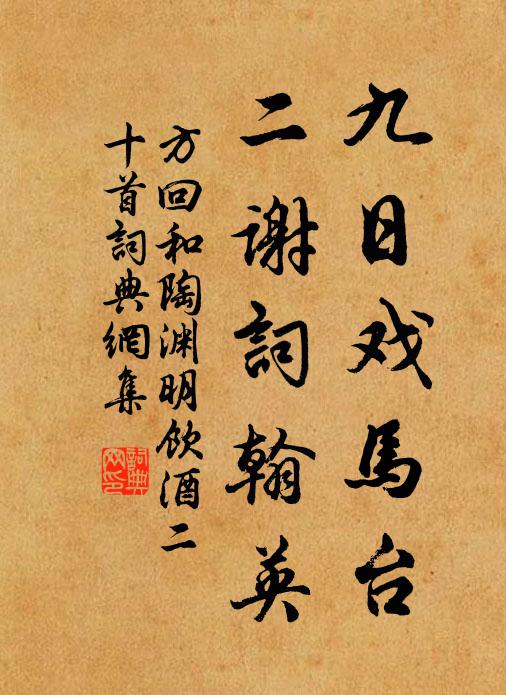 九日戏馬台
二谢詞翰英
方回和陶渊明飲酒二
十首詞典網集
詞典
網印